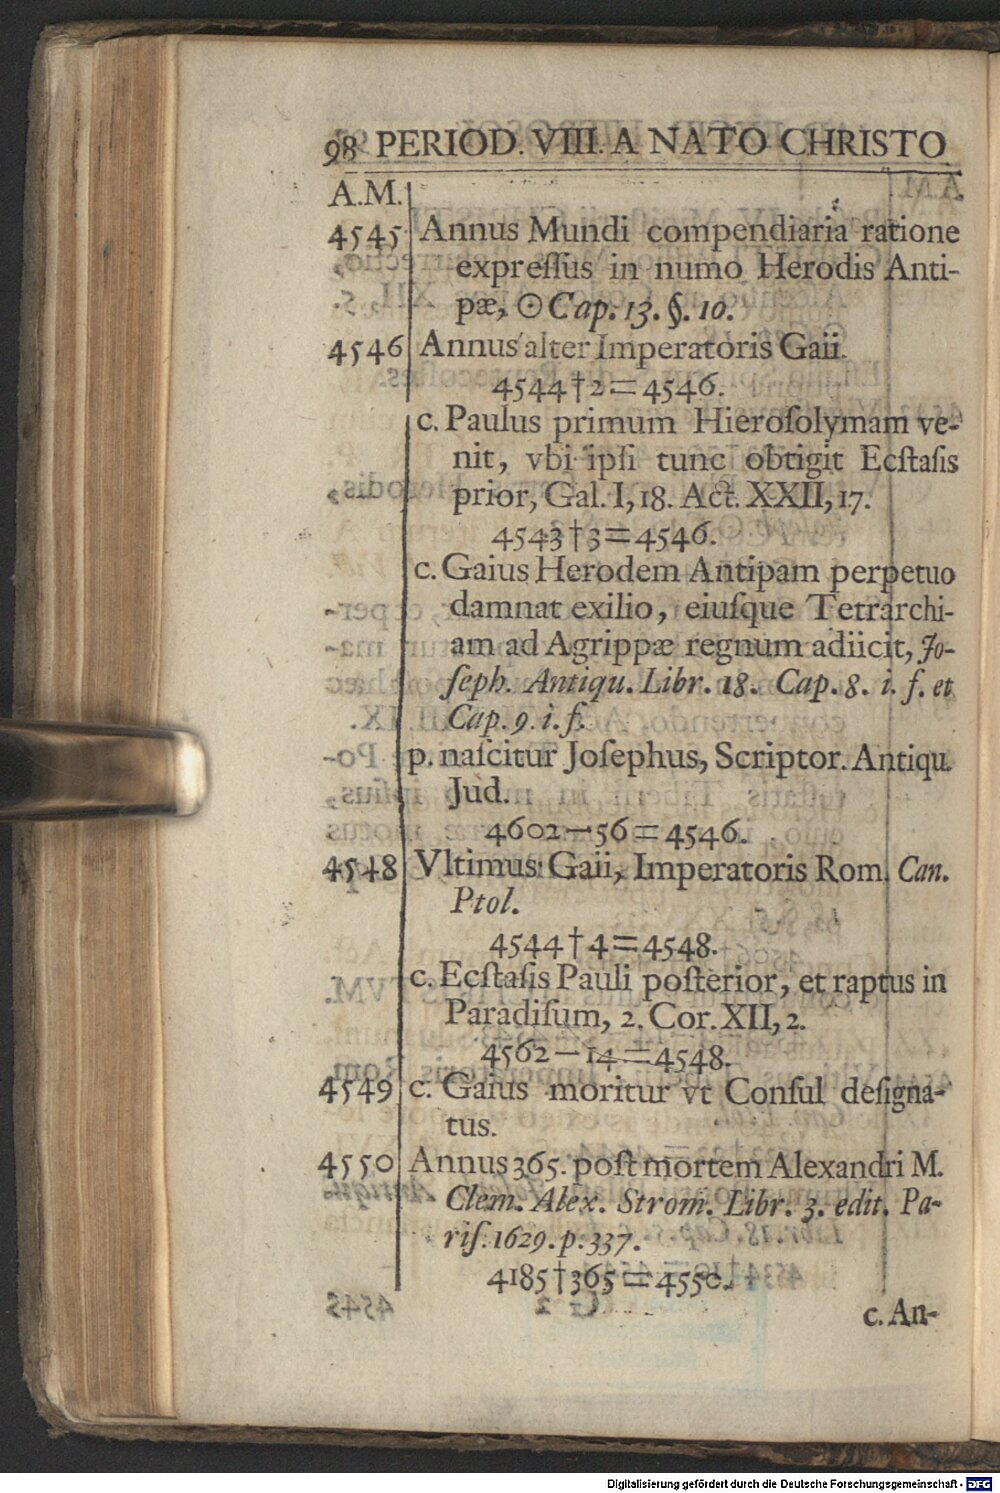 98 PERIOD. VIII. A NATO CHRISTO
A.M.
4545 Annus Mundi compendiaria ratione
expreſſus in numo Herodis Anti-
pæ, ☉ Cap. 13. §. 10.
4546 Annus alter Imperatoris Gaii.
4544†2=4546.
c. Paulus primum Hieroſolymam ve-
nit, vbi ipſi tunc obtigit Ecſtaſis
prior, Gal. I, 18. Act. XXII, 17.
4543†3=4546.
c. Gaius Herodem Antipam perpetuo
damnat exilio, eiuſque Tetrarchi-
am ad Agrippæ regnum adiicit, Jo-
ſeph. Antiqu. Libr. 18. Cap. 8. i. f. et
Cap. 9. i. f.
p. naſcitur Joſephus, Scriptor. Antiqu.
Jud.
4602—56=4546.
4548 Vltimus Gaii, Imperatoris Rom. Can.
Ptol.
4544†4=4548.
c. Ecſtaſis Pauli poſterior, et raptus in
Paradiſum, 2. Cor. XII, 2.
4562—14=4548.
4549 c. Gaius moritur vt Conſul deſigna-
tus.
4550 Annus 365. poſt mortem Alexandri M.
Clem. Alex. Strom. Libr. 3. edit. Pa-
riſ. 1629. p. 337.
4185†365=4550.
c. An-
Digitalisierung gefördert durch die Deutsche Forschungsgemeinschaft - DFG